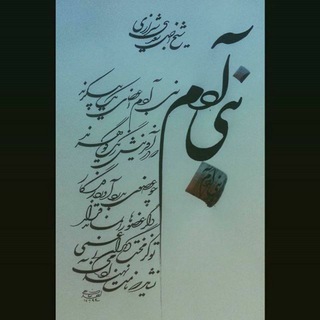 شیخ اجل سعدی شیرازی
بنی آدم
بنی آدم اعضای یک پیکرند
که در آفرینش ز یک گوهرند
چو عضوی به درد آورد روزگار
دگر عضوها را نماند قرار
تو کز محنت دیگران بی غمی
نشاید که نامت نهند آدمی